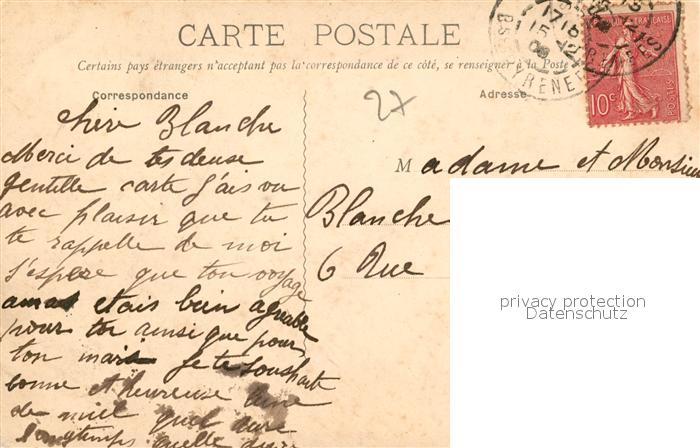 CARTE POSTALE
Certains pays étrangers n'acceptant pas la correspondance de ce côté, se renseigner à la Poste
Correspondance
27
Adresse
10c
POSTES
Bses PYRENEES
chère Blanche
Merci de tes deuse
gentille carte J'ais vu
avec plaisir que tu
te rappelle de moi
s'espere que ton voyage
etais bein agreable
pour toi ainsi que pour
ton mari Je te soushaite
bonne et heureuse
de miel quel dure
longtemps quelle dure
Madame et Monsieur
Blanche
6 Rue
privacy protection
Datenschutz